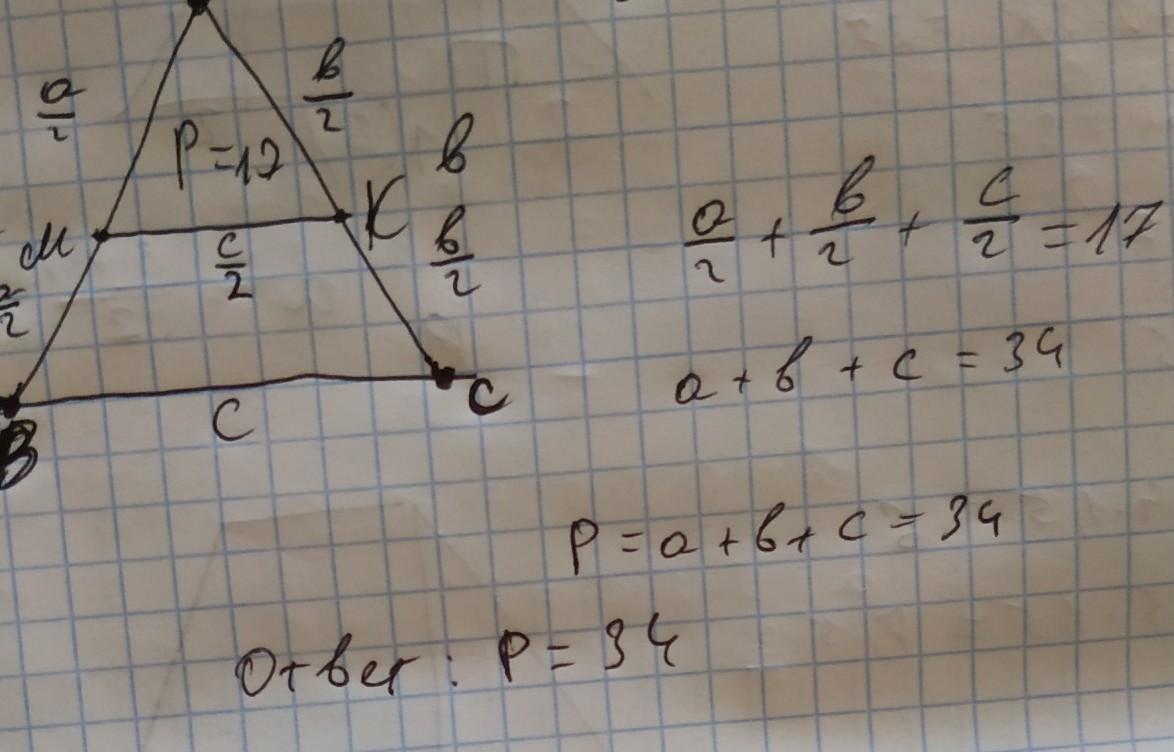 a/2
в/2
P=17
в
M
K
c/2
в/2
a/2
C
c
B
a/2 + в/2 + c/2 = 17
a + в + c = 34
P = a + в + c = 34
Ответ: P = 34